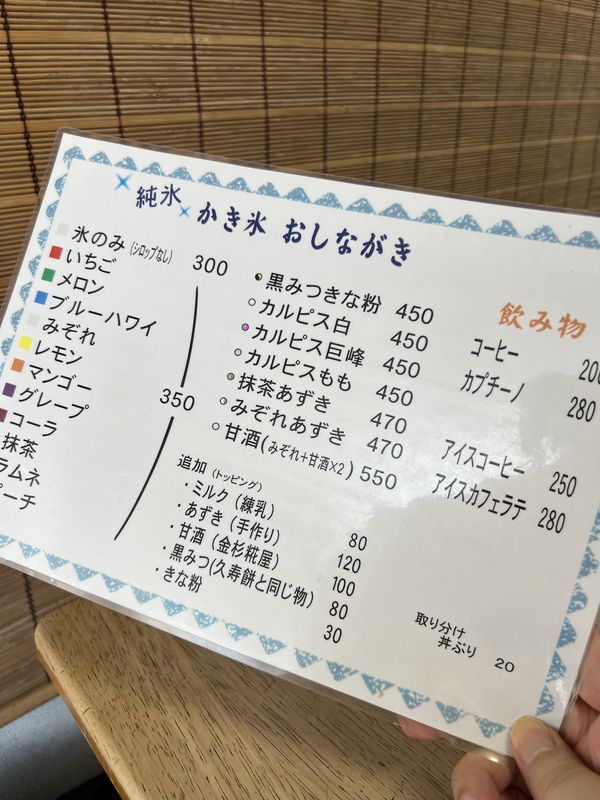 純氷 かき氷 おしながき
氷のみ(シロップなし) 300
いちご
メロン
ブルーハワイ
みぞれ
レモン
マンゴー
グレープ
コーラ
抹茶
ラムネ
ピーチ
350
黒みつきな粉 450
カルピス白 450
カルピス巨峰 450
カルピスもも 450
抹茶あずき 470
みぞれあずき 470
甘酒(みぞれ+甘酒×2) 550
追加(トッピング)
・ミルク(練乳) 80
・あずき(手作り) 120
・甘酒(金杉糀屋) 100
・黒みつ(久寿餅と同じ物) 80
・きな粉 30
飲み物
コーヒー 200
カプチーノ 280
アイスコーヒー 250
アイスカフェラテ 280
取り分け
丼ぶり 20